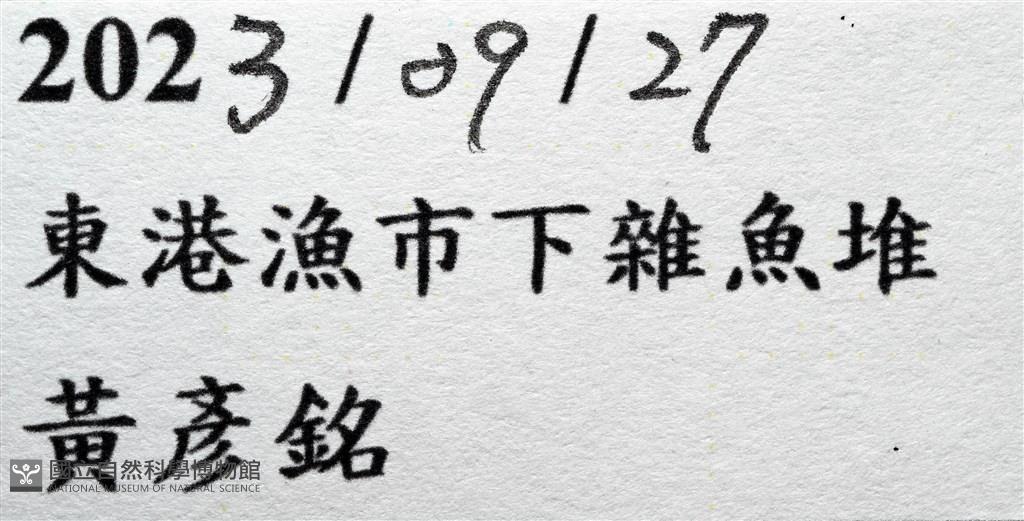 2023/09/27
東港漁市下雜魚堆
黃彥銘
國立自然科學博物館
NATIONAL MUSEUM OF NATURAL SCIENCE